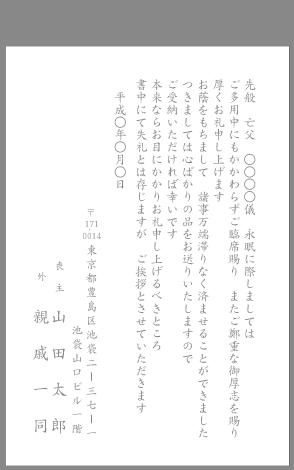 先般　亡父　〇〇〇〇儀　永眠に際しましては
ご多用中にもかかわらずご臨席賜り　またご鄭重な御厚志を賜り
厚くお礼申し上げます
お蔭をもちまして　諸事万端滞りなく済ませることができました
つきましては心ばかりの品をお送りいたしますので
ご受納いただければ幸いです
本来ならお目にかかりお礼申し上げるべきところ
書中にて失礼とは存じますが　ご挨拶とさせていただきます
平成〇年〇月〇日
〒171
0014
東京都豊島区池袋二ー三七ー一
池袋山口ビル一階
喪主　山田太郎
外　親戚一同